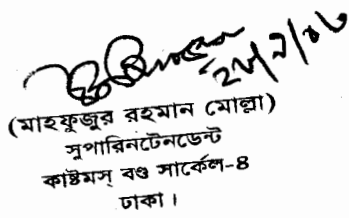 (মাহফুজুর রহমান মোল্লা)
সুপারিনটেনডেন্ট
কাষ্টমস্ বণ্ড সার্কেল-৪
ঢাকা ।